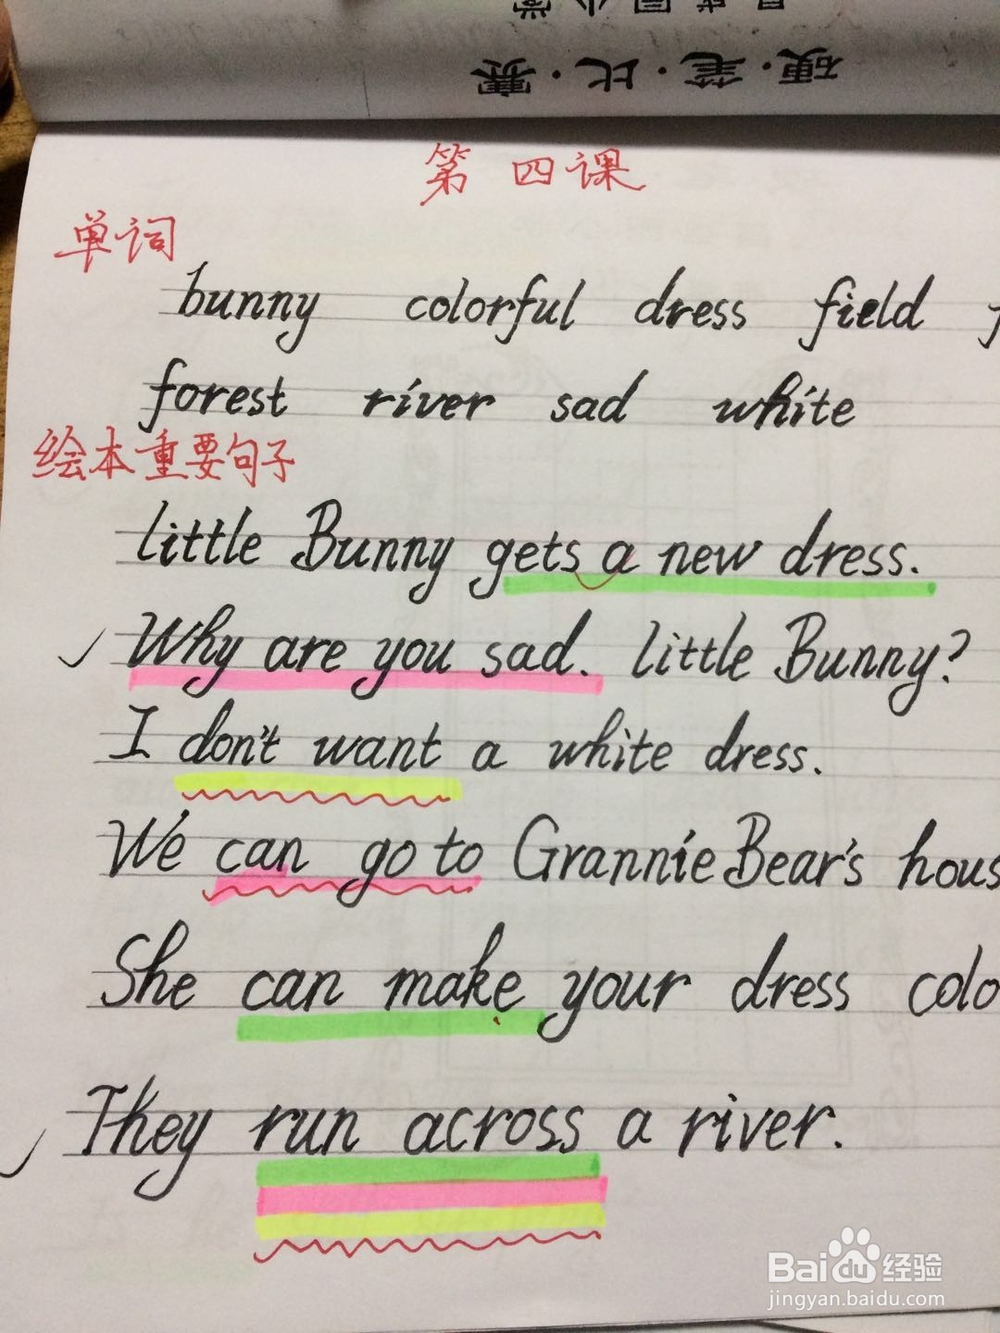 硬·笔·比·赛
第四课
单词
bunny colorful dress field
forest river sad white
绘本重要句子
little Bunny gets a new dress.
Why are you sad. little Bunny?
I don't want a white dress.
We can go to Grannie Bear's hous
She can make your dress colo
They run across a river.
Baidu经验
jingyan.baidu.com